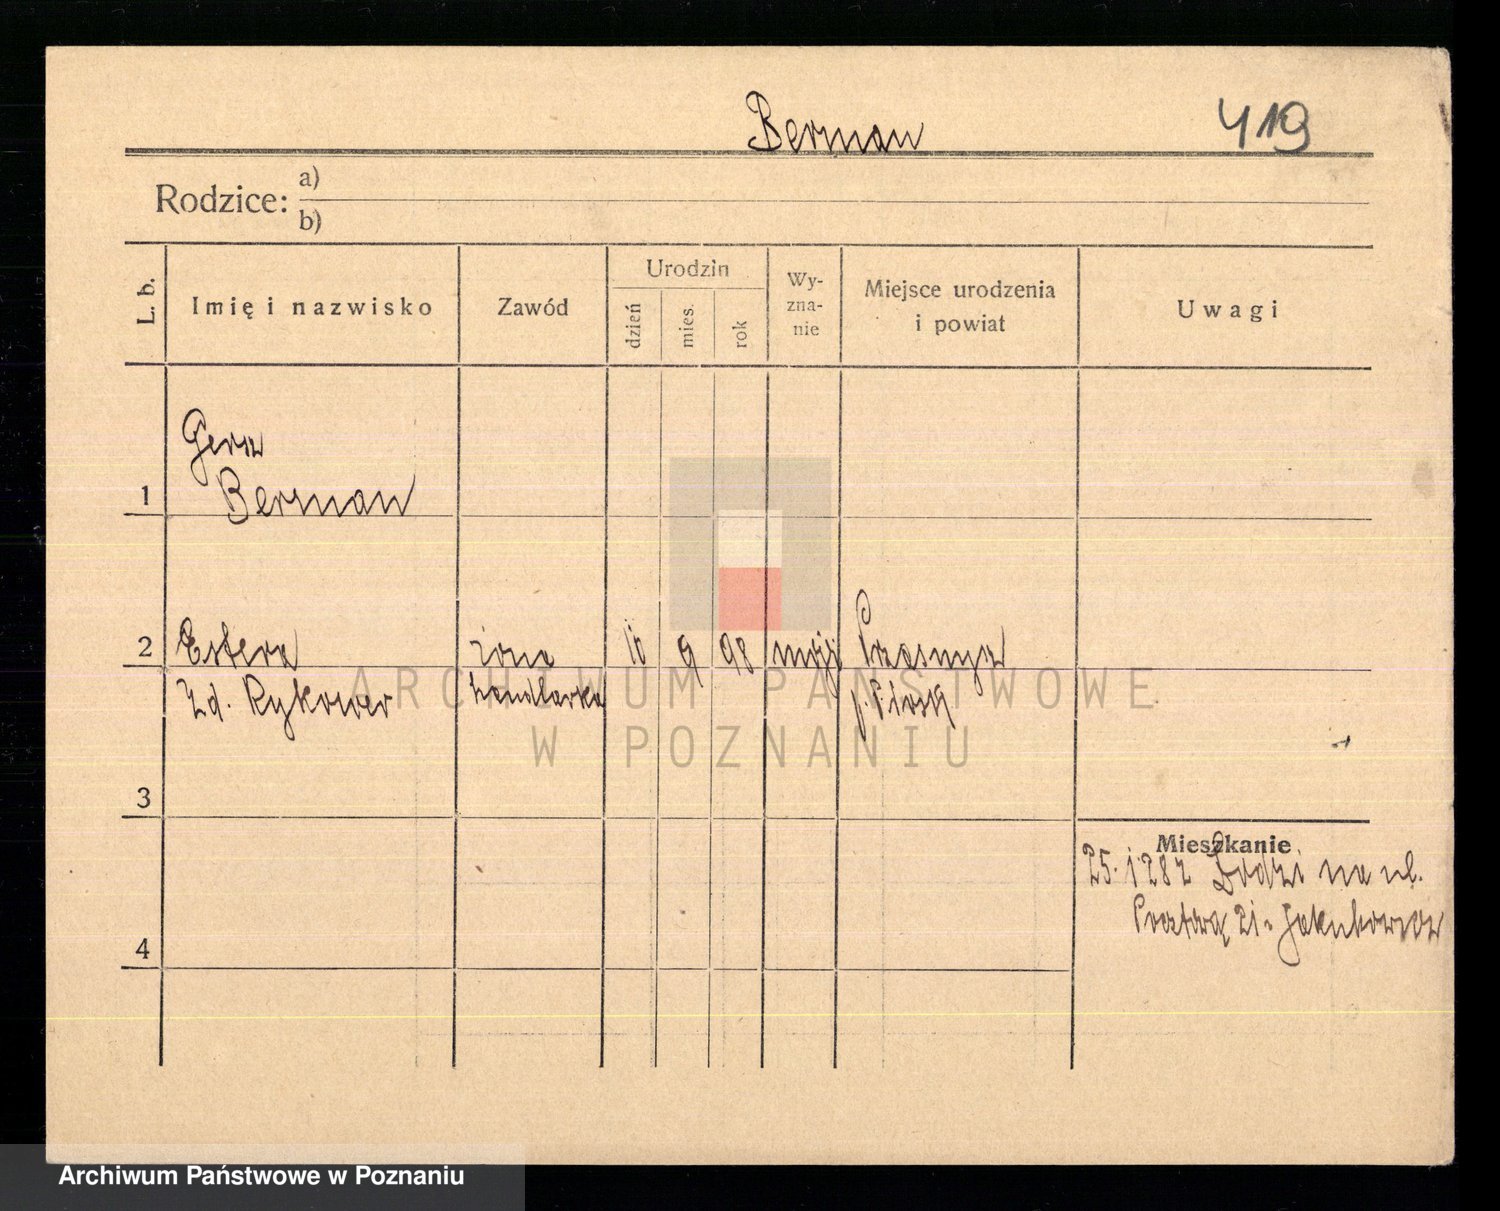 Berman
419
Rodzice: a)
b)
L. b.
Imię i nazwisko
Zawód
Urodzin
dzień
mies.
rok
Wy-
zna-
nie
Miejsce urodzenia
i powiat
Uwagi
1
Gera
Berman
2
Estera
zd. Rykower
żona
handlarka
9
98
mojż
Przasnysz
3
Mieszkanie
25. 1 282 Łodzi na ul.
21
4
ARCHIWUM PAŃSTWOWE
W POZNANIU
Archiwum Państwowe w Poznaniu